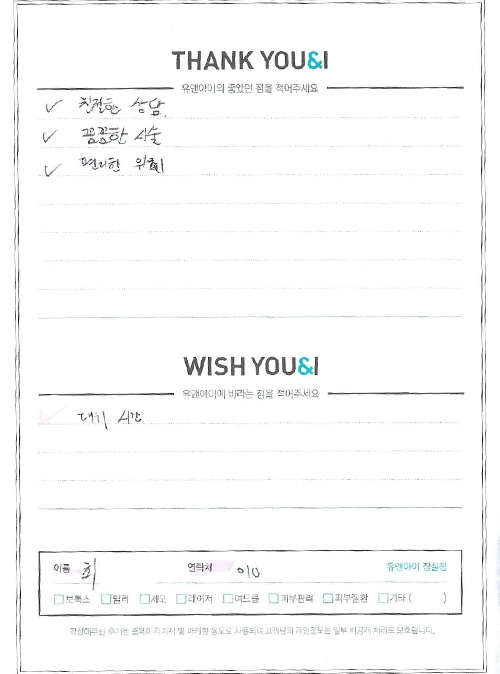 THANK YOU&I
유앤아이의 좋았던 점을 적어주세요
✓ 친절한 상담.
✓ 꼼꼼한 시술
✓ 편리한 위치
WISH YOU&I
유앤아이에 바라는 점을 적어주세요
✓ 대기 시간
이름 희 연락처 010 유앤아이 잠실점
□보톡스 □필러 □제모 □레이저 □여드름 □피부관리 □피부질환 □기타 ( )
작성해주신 후기는 홈페이지 기재 및 마케팅 용도로 사용되며 고객님의 개인정보는 일부 비공개 처리로 보호됩니다.